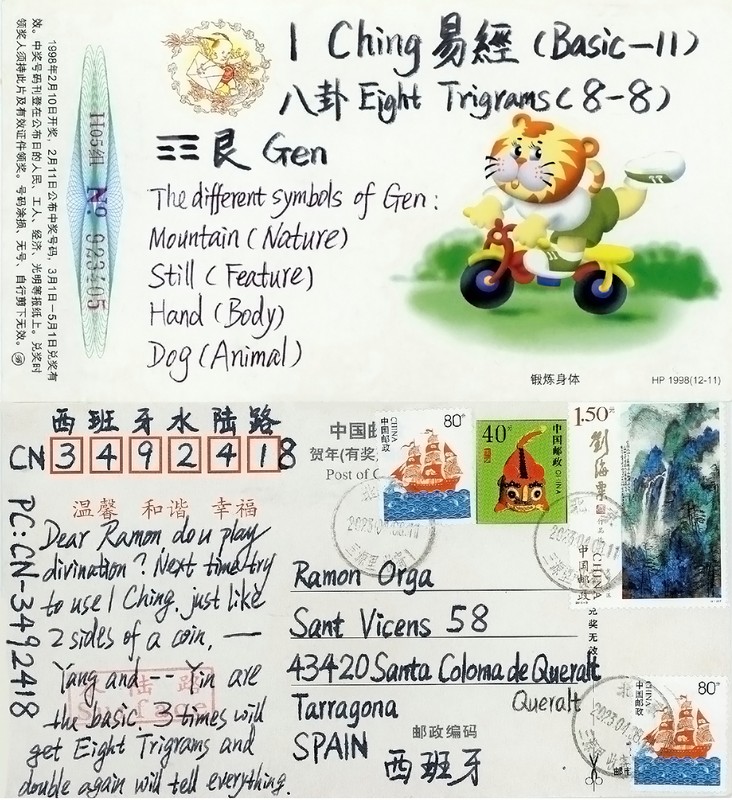 1998年2月10日开奖，2月11日公布中奖号码，3月1日—5月1日兑奖有
效。中奖号码刊登在公布日的人民、工人、经济、光明等报纸上。兑奖时
领奖人须持此片及有效证件领奖。号码涂损、无号、自行剪下无效。
H05组 No. 023405
I Ching 易經 (Basic-11)
八卦 Eight Trigrams (8-8)
☶ 艮 Gen
The different symbols of Gen:
Mountain (Nature)
Still (Feature)
Hand (Body)
Dog (Animal)
锻炼身体
HP 1998(12-11)
西班牙水陆路
CN 34924118
温馨 和谐 幸福
PC:CN-3492418
Dear Ramon do u play
divination? Next time try
to use I Ching, just like
2 sides of a coin, —
Yang and -- Yin are
the basic. 3 times will
get Eight Trigrams and
double again will tell everything.
水陆路
Surface
中国邮
贺年(有奖)
Post of C
中国邮政
CHINA
80分
40分
中国邮政 CHINA
1.50元
劉海粟
中国邮政
CHINA
2023.04.09.11
2023.04.09.11
兑奖无效
Ramon Orga
Sant Vicens 58
43420 Santa Coloma de Queralt
Queralt
Tarragona
SPAIN
邮政编码
西班牙
中国邮政
CHINA
80分
2023.04.09